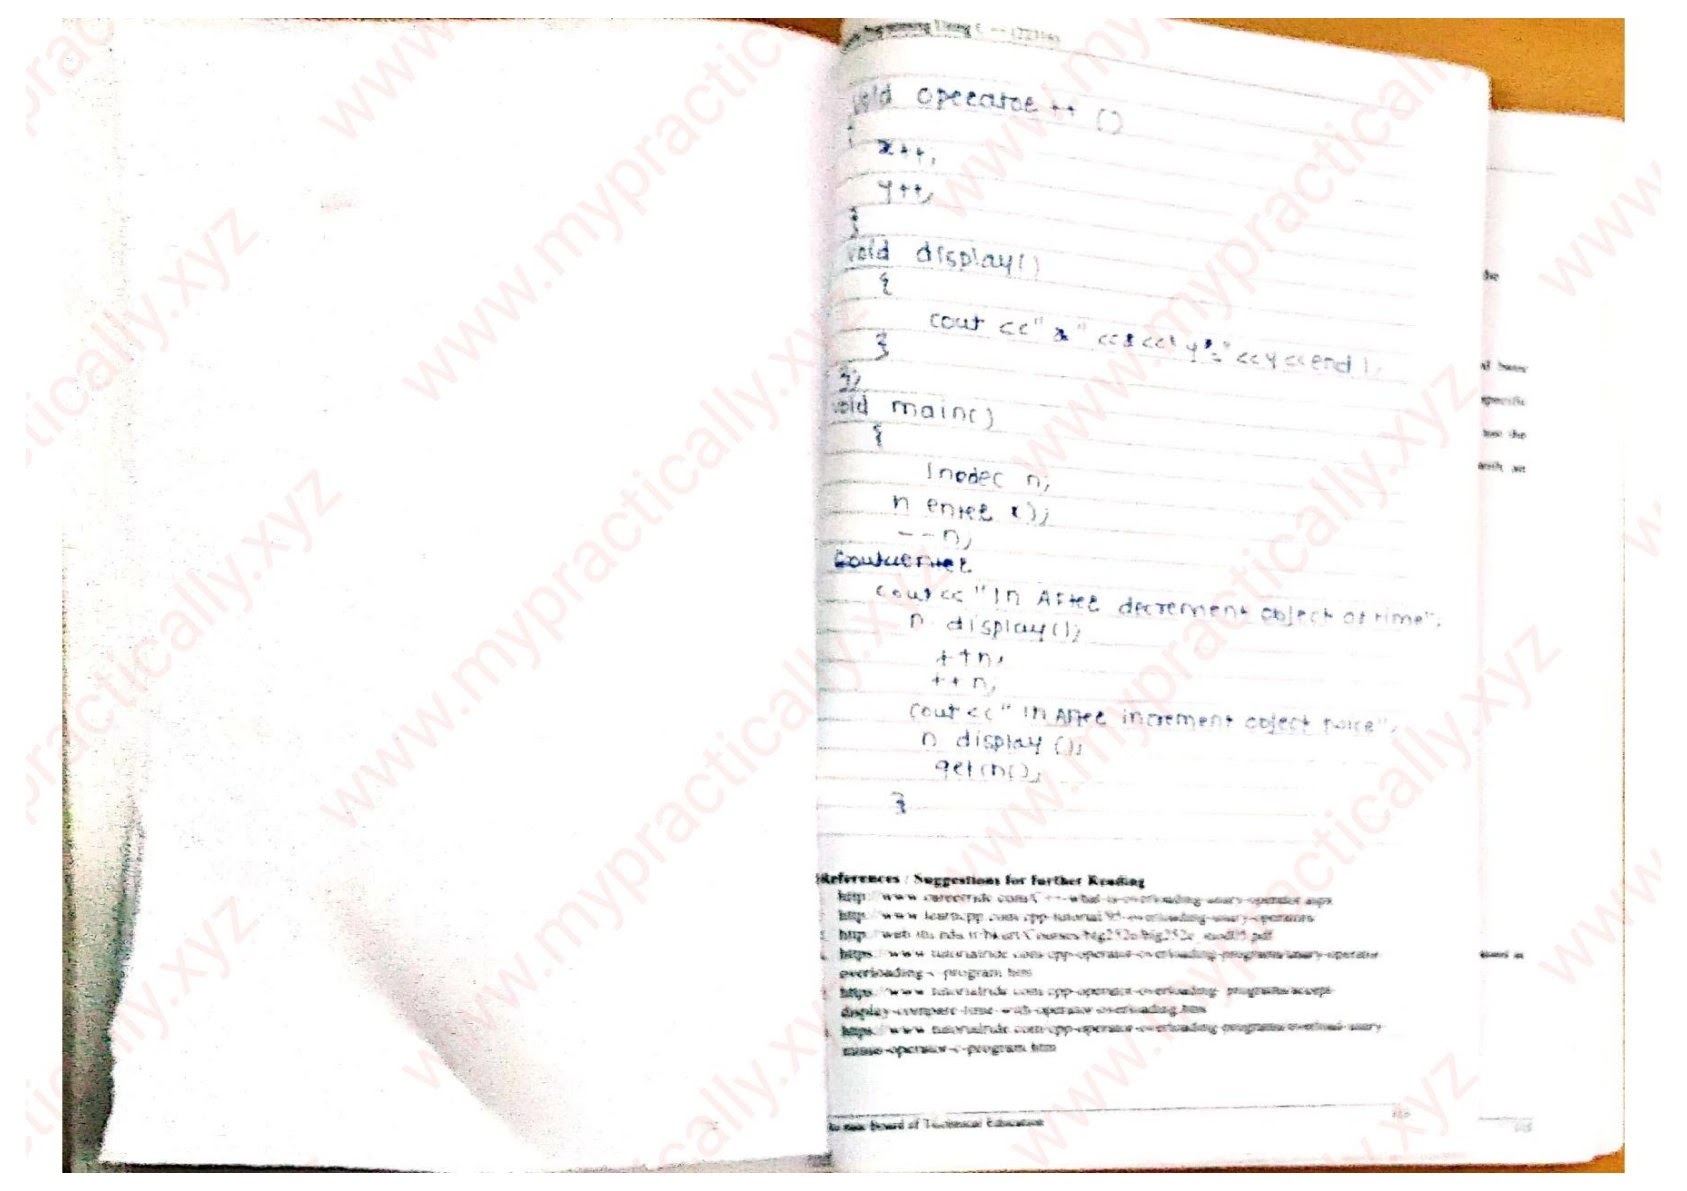 Programming Using C++ (22316)
void operator ++ ()
{
x++;
y++;
}
void display()
{
cout <<" x " <<x<<" y = "<<y<<endl;
}
};
void main()
{
Indec n;
n enter ();
--n;
cout<<"In After decrement object of time";
n display();
++n;
++n;
cout<<" In After increment object twice";
n display ();
getch();
}
References / Suggestions for further Reading
http://www.careerride.com/C++-what-is-overloading-unary-operator.aspx
http://www.learncpp.com/cpp-tutorial/95-overloading-unary-operators/
https://www.tutorialride.com/cpp-operator-overloading-programs/unary-operator
overloading-c-program.htm
https://www.tutorialride.com/cpp-operator-overloading- programs/accept-
display-compare-time-with-operator-overloading.htm
https://www.tutorialride.com/cpp-operator-overloading-programs/overload-unary
minus-operator-c-program.htm
Board of Technical Education
the
specific
www.mypractically.xyz